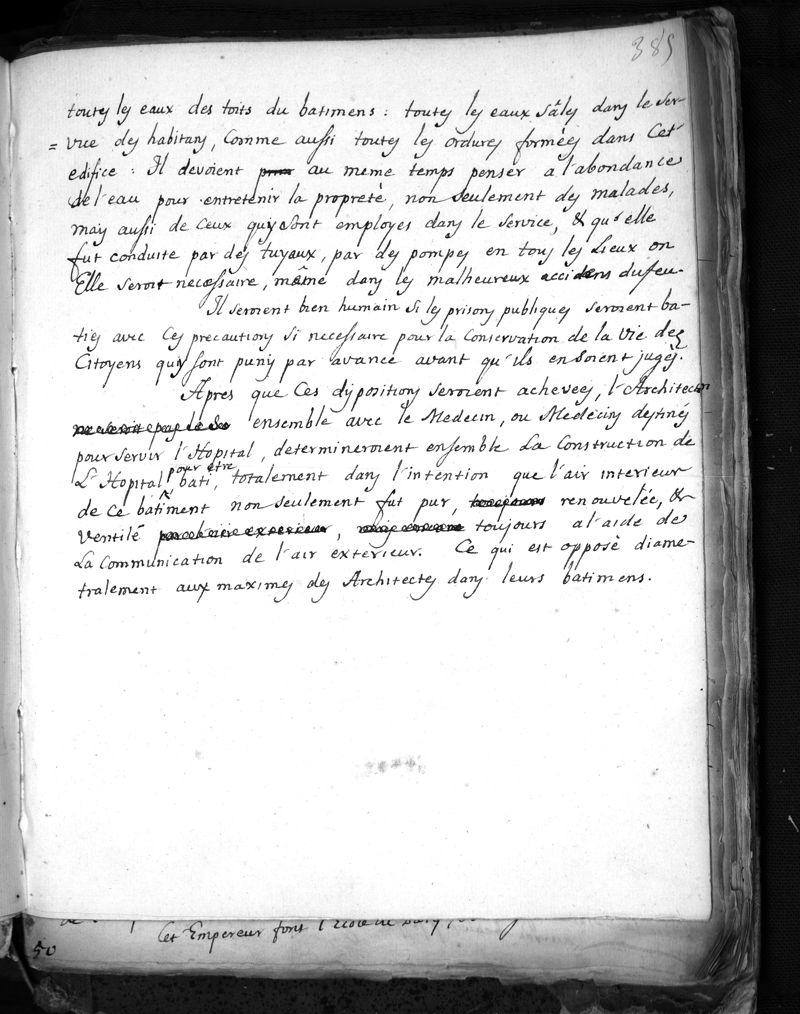 385
toutes les eaux des toits du batimens : toutes les eaux sâles dans le ser-
= vice des habitans, Comme aussi toutes les ordures formées dans Cet
edifice : Il devoient au meme temps penser a l'abondance
de l'eau pour entretenir la propretè, non seulement des malades,
mais aussi de Ceux qui sont employes dans le service, & qu'elle
fut conduite par des tuyaux, par des pompes en tous les Lieux ou
Elle seroit necessaire, même dans les malheureux accidens du feu.
Il seroient bien humain si les prisons publiques seroient ba-
ties avec Ces precautions si necessaire pour la Conservation de la Vie des
Citoyens qui sont punis par avance avant qu'ils en soient jugés.
Apres que Ces dispositions seroient achevees, l'Architecte
ensemble avec le Medecin, ou Medecins destinés
pour servir l'Hopital, determineroient ensemble La Construction de
L'Hopital pour être bati, totalement dans l'intention que l'air interieur
de Ce batiment non seulement fut pur, renouvelée, &
Ventilé , toujours a l'aide de
La Communication de l'air exterieur. Ce qui est opposè diame-
tralement aux maximes des Architectes dans leurs batimens.
Cet Empereur font
50